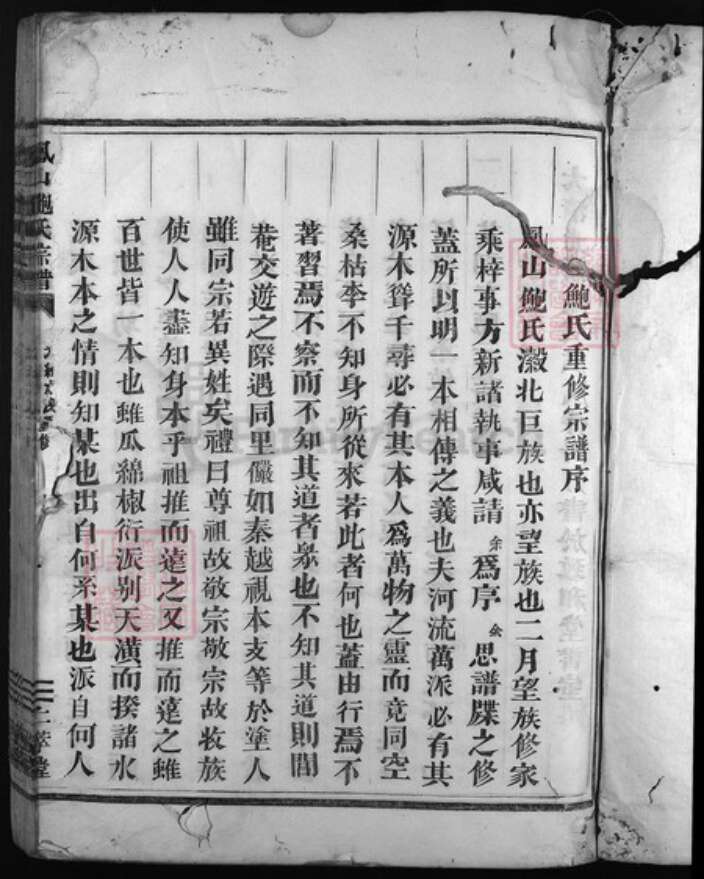 鮑氏重修宗譜序
鳳山鮑氏瀫北巨族也亦望族也二月望族修家
乘梓事方新諸執事咸請余為序余思譜牒之修
蓋所以明一本相傳之義也夫河流萬派必有其
源木聳千尋必有其本人為萬物之靈而竟同空
桑枯李不知身所從來若此者何也蓋由行焉不
著習焉不察而不知其道者衆也不知其道則閭
菴交遊之際遇同里儼如秦越視本支等於塗人
雖同宗若異姓矣禮曰尊祖故敬宗敬宗故收族
使人人盡知身本乎祖推而遠之又推而遠之雖
百世皆一本也雖瓜綿椒衍派别天潢而揆諸水
源木本之情則知某也出自何系某也派自何人
鳳山鮑氏宗譜